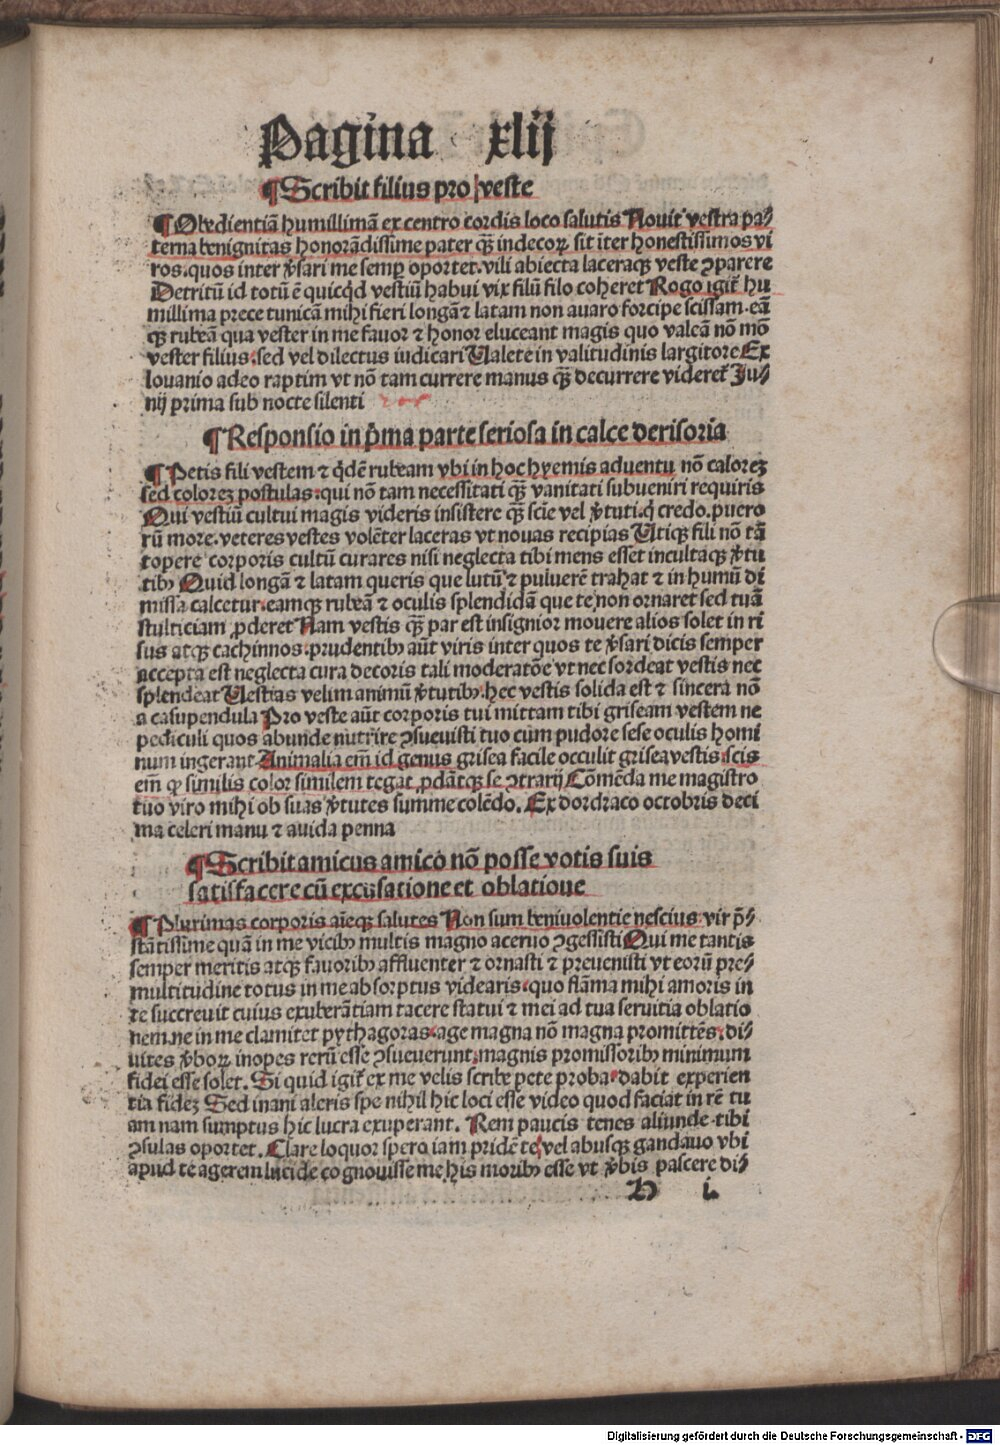 Pagina xlij
¶Scribit filius pro veste
¶Obedientiā humillimā ex centro cordis loco salutis Nouit vestra pa⸗
terna benignitas honorādissime pater qȝ indecoꝝ sit īter honestissimos vi
ros.quos inter v̓sari me semꝑ oportet.vili abiecta laceraqȝ veste ꝯparere
Detritū id totū ē quicqd vestiū habui vix filū filo coheret Rogo igit̄ hu
millima prece tunicā mihi fieri longā ⁊ latam non auaro forcipe scissam.eā
qȝ rubeā qua vester in me fauor ⁊ honor eluceant magis quo valeā nō mō
vester filius.sed vel dilectus iudicari Ualete in valitudinis largitore Ex
louanio adeo raptim vt nō tam currere manus qȝ decurrere videret̄ Ju⸗
nij prima sub nocte silenti
¶Responsio in p̄ma parte seriosa in calce derisoria
¶Petis fili vestem ⁊ q̇dē rubeam vbi in hoc hyemis aduentu nō caloreȝ
sed coloreȝ postulas.qui nō tam necessitati qȝ vanitati subueniri requiris
Qui vestiū cultui magis videris insistere qȝ scīe vel v̓tuti.q̇ credo.puero
rū more.veteres vestes volēter laceras vt nouas recipias Utiqȝ fili nō tā
topere corporis cultū curares nisi neglecta tibi mens esset incultaqȝ v̓tu
tibꝫ Quid longā ⁊ latam queris que lutū ⁊ puluerē trahat ⁊ in humū di
missa calcetur.eamqȝ rubeā ⁊ oculis splendidā que te non ornaret sed tuā
stulticiam ꝓderet Nam vestis qȝ par est insignior mouere alios solet in ri
sus atqȝ cachinnos.prudentibꝫ aūt viris inter quos te v̓sari dicis semper
accepta est neglecta cura decoris tali moderatōe vt nec sordeat vestis nec
splendeat Uestias velim animū v̓tutibꝫ.hec vestis solida est ⁊ sincera nō
a casu pendula Pro veste aūt corporis tui mittam tibi griseam vestem ne
pediculi quos abunde nutrire ꝯsueuisti tuo cum pudore sese oculis homi
num ingerant Animalia em̄ id genus grisea facile occulit grisea vestis.scis
em̄ ꝙ similis color similem tegat ꝓdātqȝ se ꝯtrarij Cōmēda me magistro
tuo viro mihi ob suas v̓tutes summe colēdo. Ex dordraco octobris deci
ma celeri manu ⁊ auida penna
¶Scribit amicus amico nō posse votis suis
satisfacere cū excusatione et oblatioue
¶Plurimas corporis aīeqȝ salutes Non sum beniuolentie nescius vir p̄⸗
stātissime quā in me vicibꝫ multis magno aceruo ꝯgessisti Qui me tantis
semper meritis atqȝ fauoribꝫ affluenter ⁊ ornasti ⁊ preuenisti vt eorū pre⸗
multitudine totus in me absorptus videaris.quo flāma mihi amoris in
te succreuit cuius exuberātiam tacere statui ⁊ mei ad tua seruitia oblatio
nem.ne in me clamitet pythagoras.age magna nō magna promittēs.di⸗
uites v̓boꝝ inopes rerū esse ꝯsueuerunt.magnis promissoribꝫ minimum
fidei esse solet. Si quid igit̄ ex me velis scribe pete proba.dabit experien
tia fideȝ Sed inani aleris spe nihil hic loci esse video quod faciat in rē tu
am nam sumptus hic lucra exuperant. Rem paucis tenes aliunde tibi
ꝯsulas oportet. Clare loquor spero iam pridē te vel abusqȝ gandauo vbi
apud te agerem lucide cognouisse me his moribꝫ esse vt v̓bis pascere di⸗
h i.
Digitalisierung gefördert durch die Deutsche Forschungsgemeinschaft - DFG